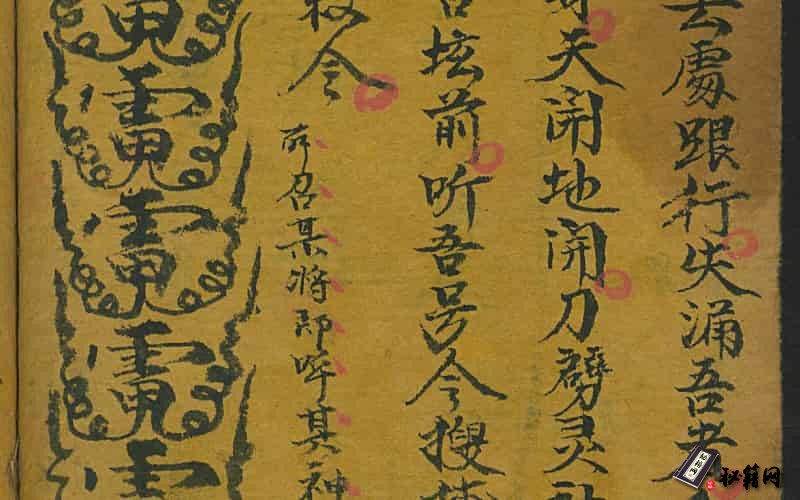 去處跟行失漏吾
天開地開刀劈灵
坛前听吾号令搜
令
所召某将即呼其神
雷
雷
雷
秘籍网